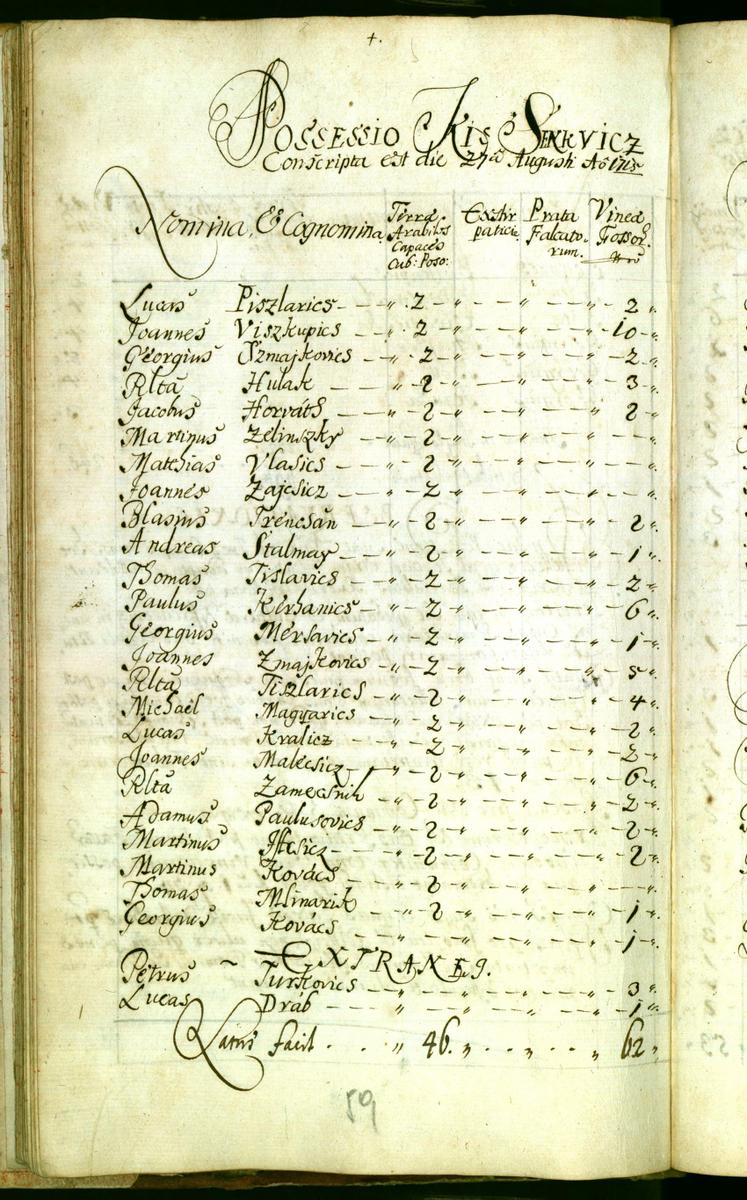 +.
Possessio Kis Senkvicz
Conscripta est die 27a Augusti Ao 1715
Nomina, & Cognomina. Terrae Arabiles Capaces Cub: Poso: Exstirpaticiae Prata Falcatorum. Vineae Fossor.
Lucas Piszlarics — " 2 — " — " — " 2 "
Joannes Viszkupics — " 2 — " — " — " 10 "
Georgius Szmajkovics — " 2 — " — " — " 2 "
Rlta Hulak — " 2 — " — " — " 3 "
Jacobus Horváth — " 2 — " — " — " 2 "
Martinus Zelinszky — " 2 — " — " — " — "
Mathias Vlasics — " 2 — " — " — " — "
Joannes Zajcsicz — " 2 — " — " — " — "
Blasius Trencsán — " 2 — " — " — " 2 "
Andreas Stalmay — " 2 — " — " — " 1 "
Thomas Tislavics — " 2 — " — " — " 2 "
Paulus Kerhanics — " 2 — " — " — " 6 "
Georgius Mersavics — " 2 — " — " — " 1 "
Joannes Zmajkovics — " 2 — " — " — " 5 "
Rlta Tiszlarics — " 2 — " — " — " 4 "
Michaël Magyarics — " 2 — " — " — " 2 "
Lucas Kralicz — " 2 — " — " — " 2 "
Joannes Malecsicz — " 2 — " — " — " 6 "
Rlta Zamecsnik — " 2 — " — " — " 2 "
Adamus Paulusovics — " 2 — " — " — " 2 "
Martinus — " 2 — " — " — " 2 "
Martinus Kovács — " 2 — " — " — " — "
Thomas Mlinarik — " 2 — " — " — " 1 "
Georgius Kovács — " — " — " — " 1 "
~ Extranei.
Petrus Turkovics — " — " — " — " 3 "
Lucas Dráb — " — " — " — " 1 "
Latus facit . . . " 46. " . . . " . . " 62 "
59